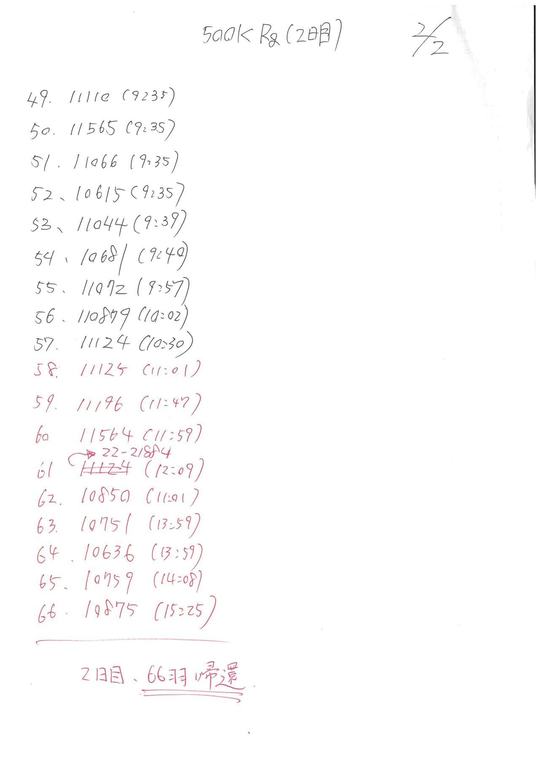 500K Rg(2日目) 2/2
49. 11110 (9:35)
50. 11565 (9:35)
51. 11066 (9:35)
52、10615 (9:35)
53、11044 (9:39)
54、10681 (9:40)
55. 11072 (9:57)
56. 110879 (10:02)
57. 11124 (10:30)
58. 11125 (11:01)
59. 11196 (11:47)
60 11564 (11:59)
22-21884
61 11124 (12:09)
62. 10850 (11:01)
63. 10751 (13:59)
64. 10636 (13:59)
65. 10759 (14:08)
66. 10875 (15:25)
2日目、66羽帰還